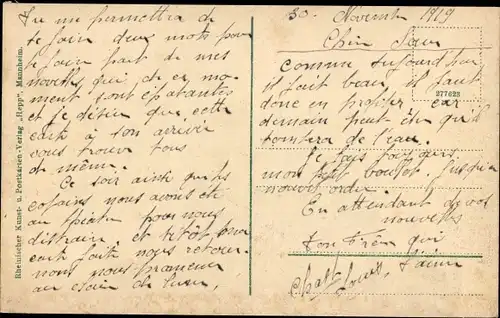 30. Novembre 1919
Chère Soeur
comme aujourd'hui
il fait beau, il faut
donc en profiter car
demain peut être qu'il
tombera de l'eau.
Je fais toujours
mon petit boulot. jusqu'à
nouvel ordre.
En attendant de vos
nouvelles
Ton Frère qui
t'aime
Louis
permettra de
te faire deux mots pour
te faire part de mes
nouvelles qui de ce mo-
ment sont épatantes
et je désire que cette
carte à son arrivée
vous trouve tous
de même.
Ce soir ainsi que les
copains nous avons été
au pour nous
distraire et
fait nous retour-
nons nous promener
au clair de lune,
277623
Rheinischer Kunst- u. Postkarten-Verlag „Repp", Mannheim.